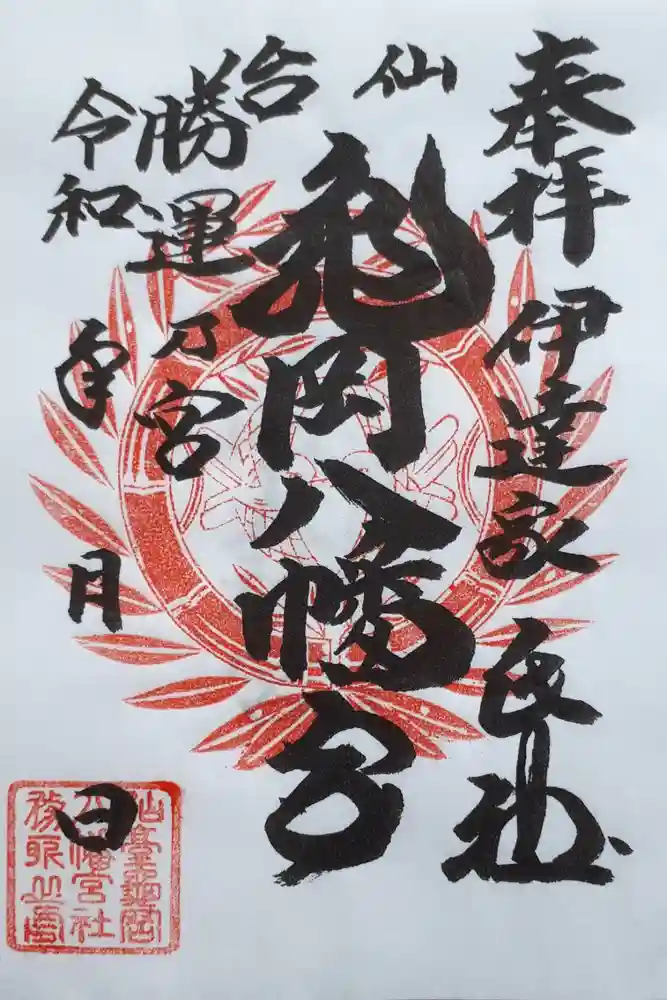 奉拝 伊達家氏神
仙台
亀岡八幡宮
勝運乃宮
令和 年 月 日
仙臺龜岡
八幡宮社
務所之印